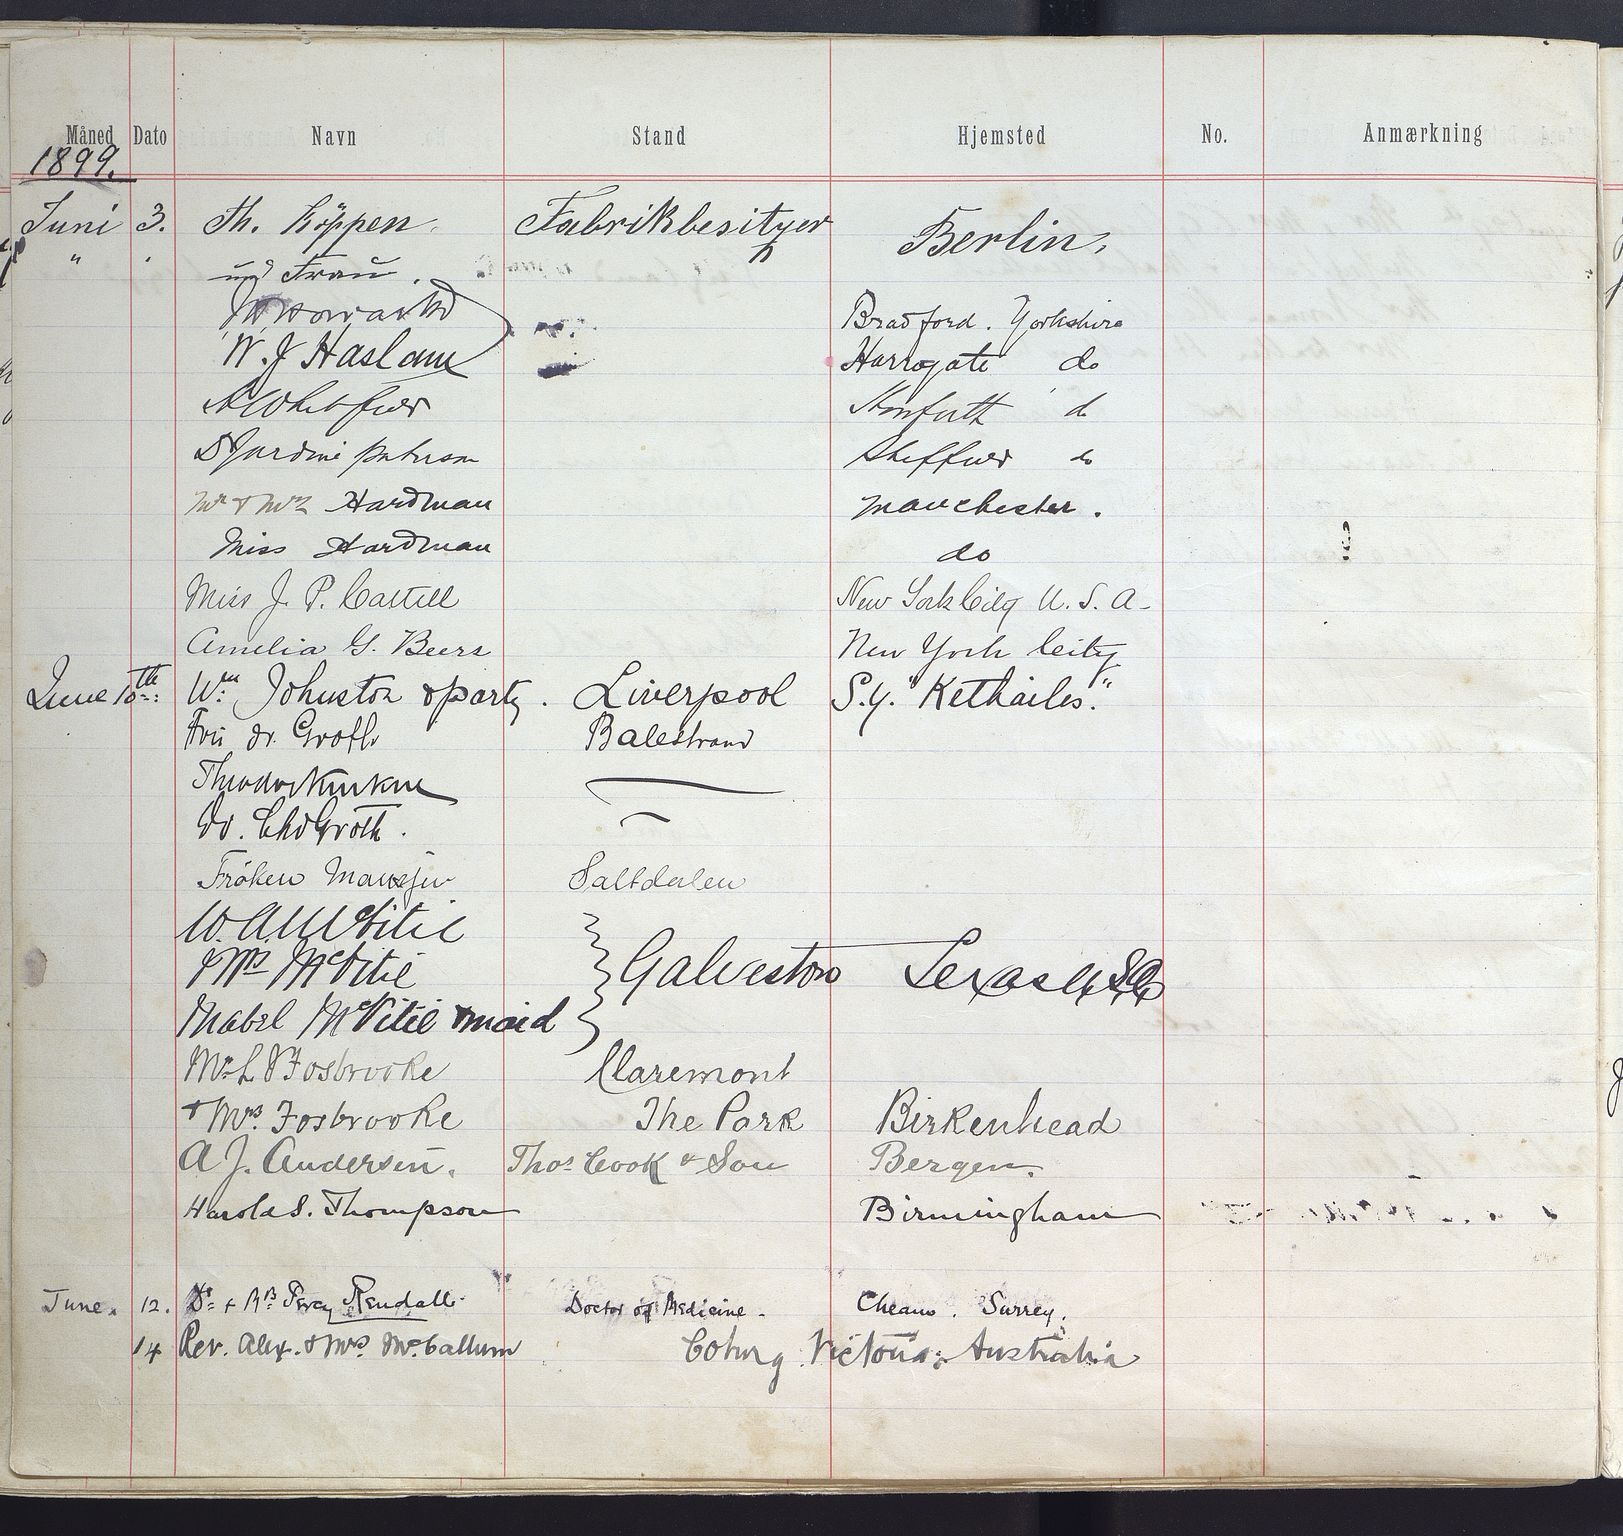 Måned Dato Navn Stand Hjemsted No. Anmærkning
1899.
Juni 3. Th. Köppen. Fabrikbesitzer Berlin.
" und Frau.
Bradford. Yorkshire
W. J Haslam Harrogate do
do
D Jardine Paterson Sheffield do
Mr & Mrs Hardman Manchester.
Miss Hardman do
Miss J. P. Cattell New York City U. S. A-
Amelia G. Beers New York City
June 10th: Wm Johnston & party. Liverpool S.Y. "Kethailes."
Dr. Groth Balestrand
Theodor
Dr. Chr Groth.
Fröken Saltdalen
W. A. McVitie
Mrs McVitie Galveston Texas U.S.A
Mabel McVitie & maid
Mr L Fosbrooke Claremont
& Mrs. Fosbrooke The Park Birkenhead
A J. Andersen. Thos Cook & Son Bergen.
Harold S. Thompson Birmingham
June. 12. Dr. + Mrs Percy Rendall. Doctor of Medicine. Cheam. Surrey.
14 Rev. Alex. & Mrs. McCallum Coburg Victoria: Australia